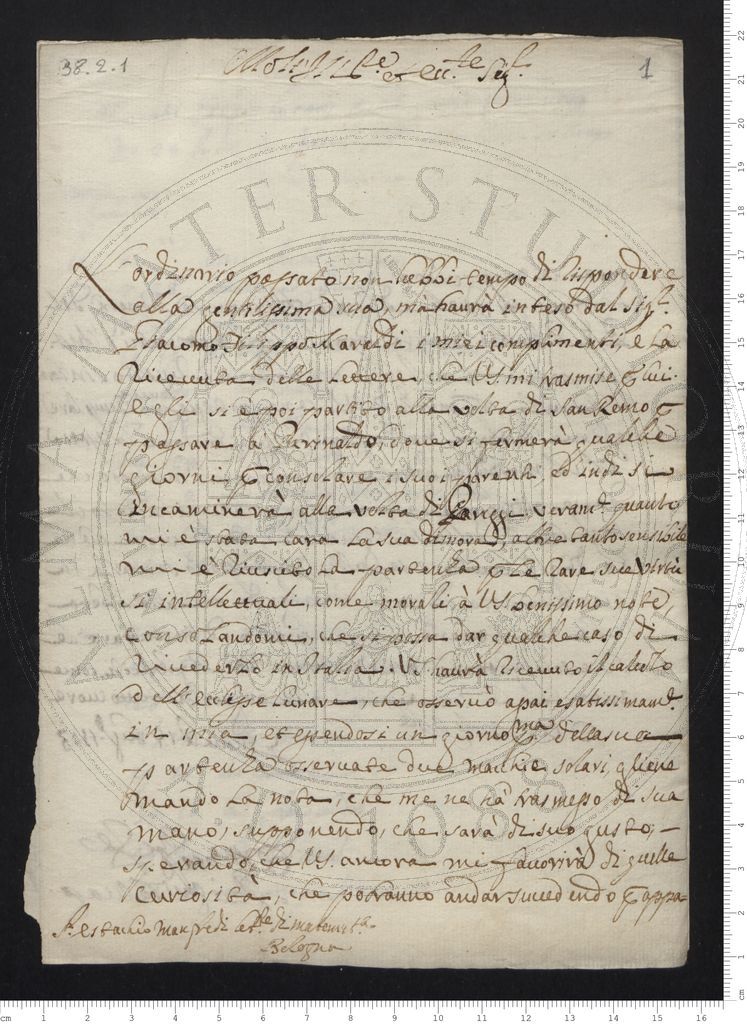 38.2.1
1
Molt' Ill.re et ecc.te Sig.r
L'ordinario passato non hebbi tempo di rispondere
alla gentilissima sua, mà haurà inteso dal Sig.r
Giacomo Filippo Maraldi i miei complimenti, e la
ricevuta delle lettere, che V.S. mi trasmise p lui.
Egli si è poi partito alla volta di San Remo p
passare à Perinaldo, dove si fermerà qualche
giorni, p consolare i suoi parenti, ed indi si
incaminerà alla volta di Pariggi. veram.te quanto
mi è stata cara la sua dimora, altretanto sensibile
mi è riuscito la partenza p le rare sue virtù
si intellettuali, come morali à V.S. benissimo note,
consolandomi, che si possa dar qualche caso di
rivederlo in Italia. V.S. haurà ricevuto il calcolo
dell'eclisse lunare, che osservò apai esatissimam.te
in mia, et essendosi un giorno p.ma della sua
partenza osservate due macchie solari, gliene
mando la nota, che me ne hà trasmesso di sua
mano, supponendo, che sarà di suo gusto,
sperando, che V.S. ancora mi favorirà di quelle
curiosità, che potranno andar succedendo p appa-
S.r Estachio Manfredi att.re di matemat.ca
Bologna
ALMA MATER STUDIORUM
A.D. 1088